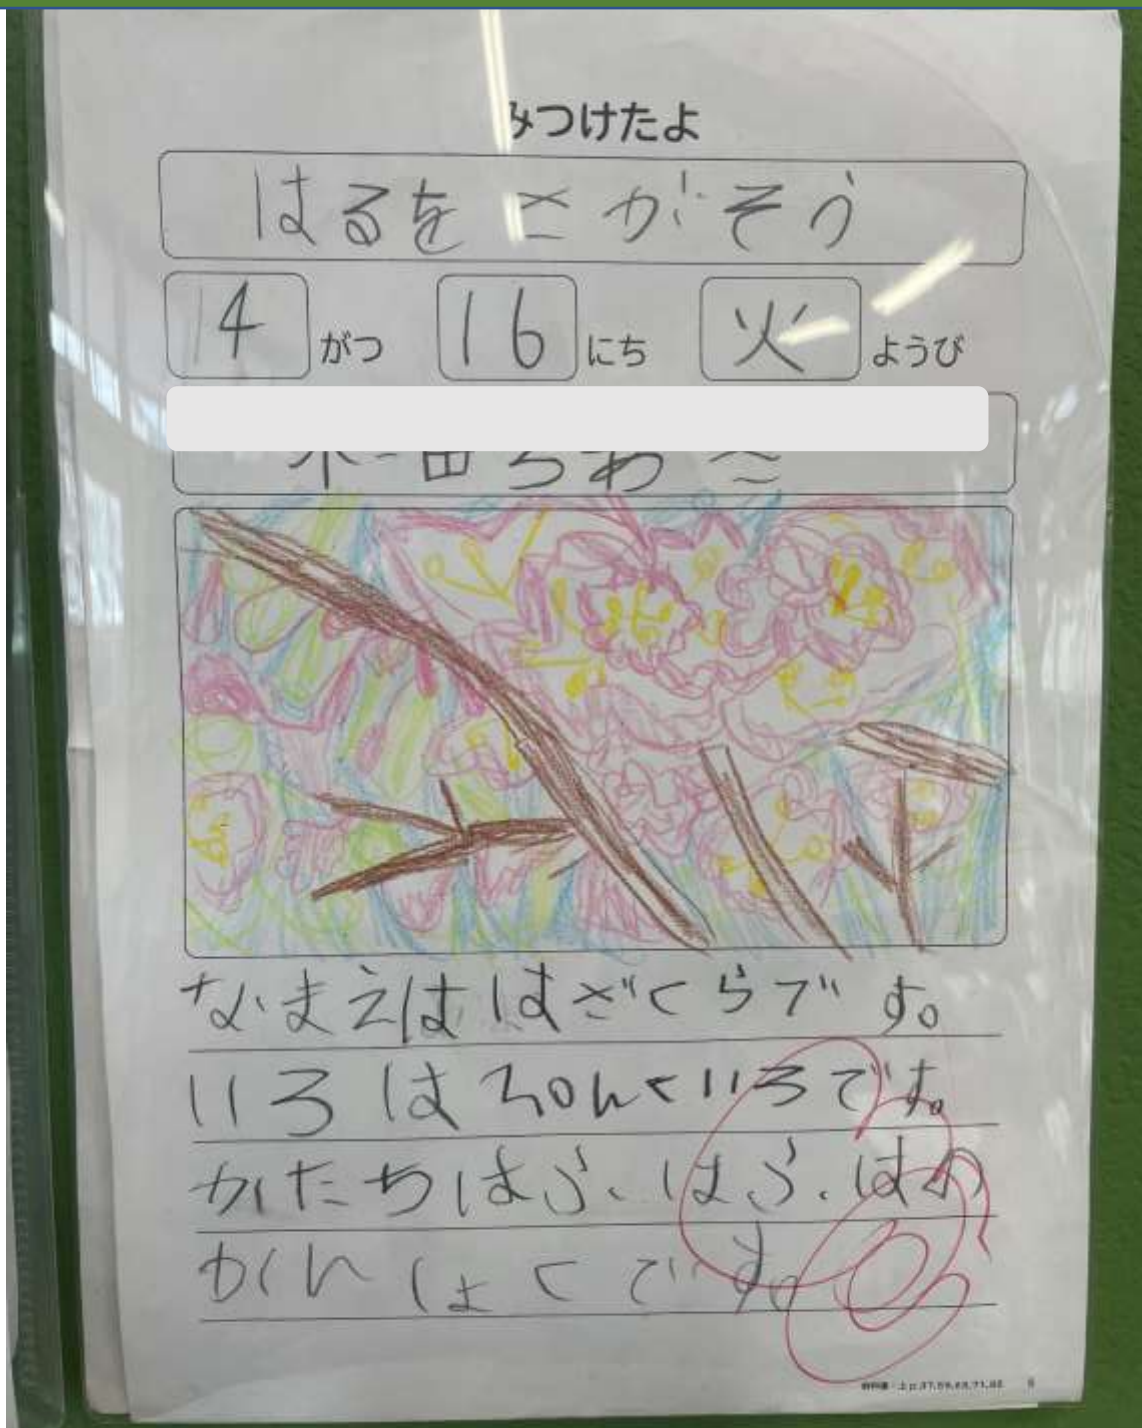 みつけたよ
はるをさがそう
4がつ 16にち 火ようび
なまえははざくらです。
いろはぴんくいろです。
かたちはふ、はふ、はの
かんしょくです。